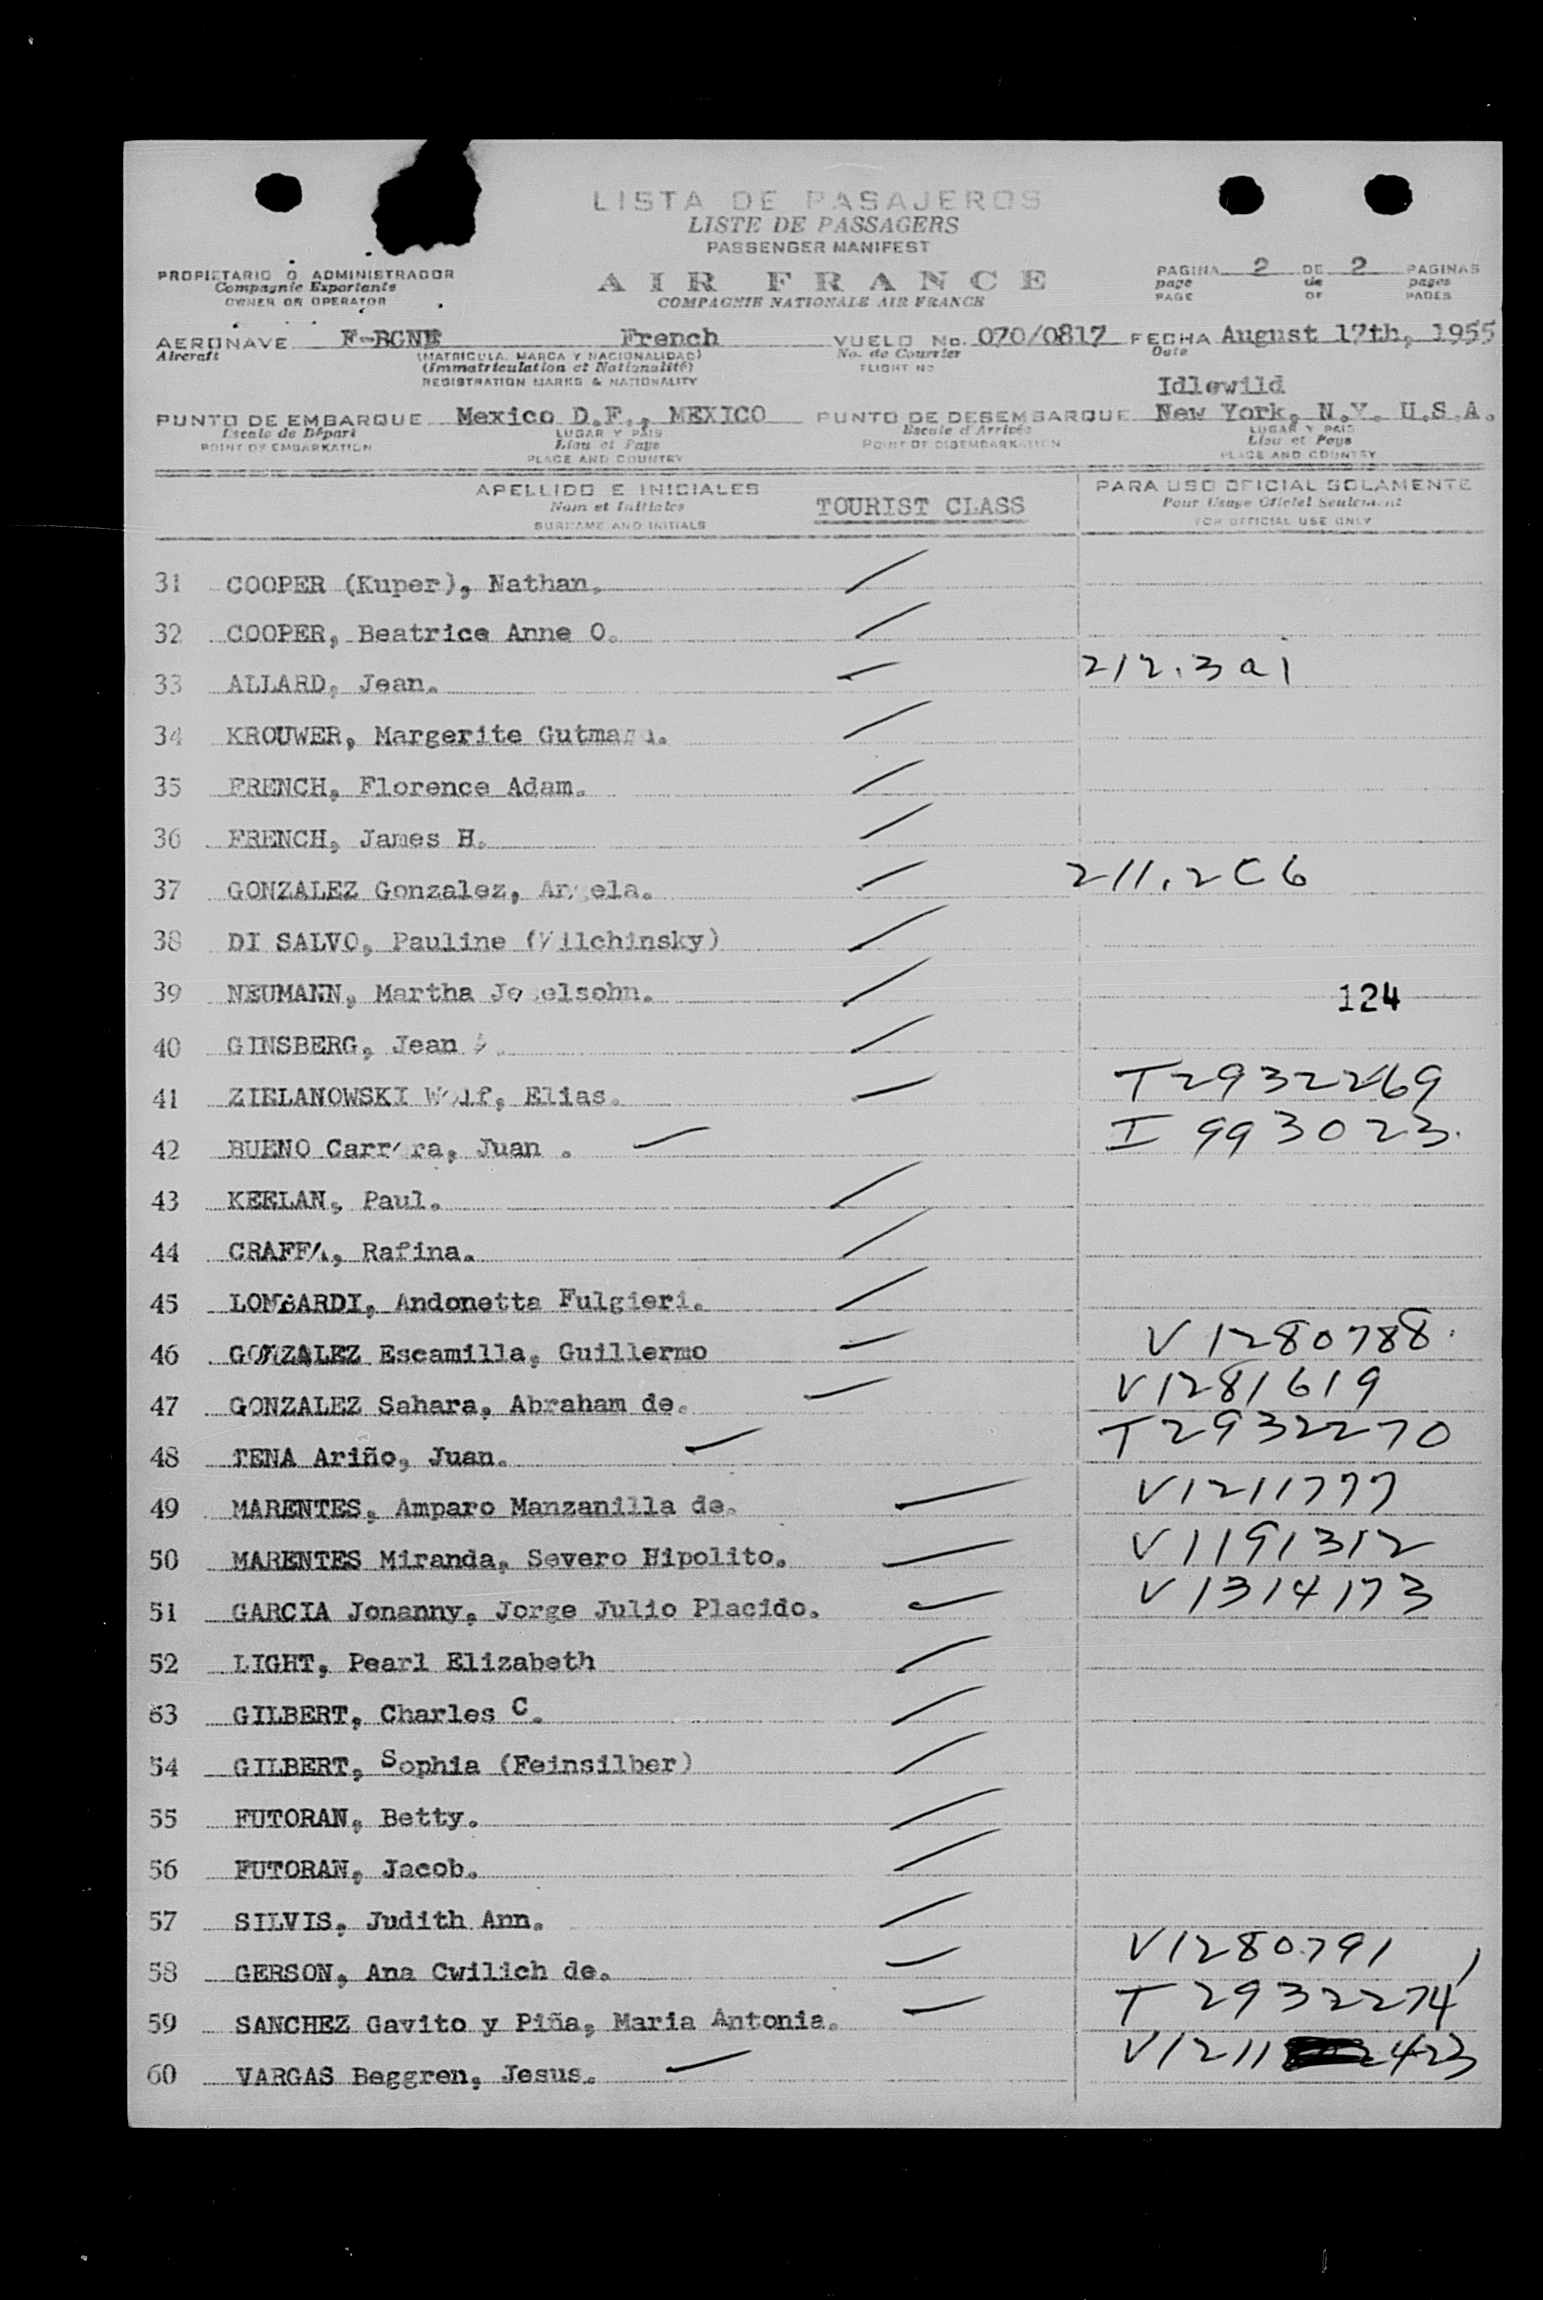 LISTA DE PASAJEROS
LISTE DE PASSAGERS
PASSENGER MANIFEST
PROPIETARIO O ADMINISTRADOR
Compagnie Exportante
OWNER OR OPERATOR
AIR FRANCE
COMPAGNIE NATIONALE AIR FRANCE
PAGINA 2 DE 2 PAGINAS
page de pages
PAGE OF PAGES
AERONAVE F-BGNE French VUELO No. 070/0817 FECHA August 17th, 1955
Aircraft (MATRICULA, MARCA Y NACIONALIDAD) No. de Courrier Date
(Immatriculation et Nationalité) FLIGHT No
REGISTRATION MARKS & NATIONALITY
Idlewild
PUNTO DE EMBARQUE Mexico D.F., MEXICO PUNTO DE DESEMBARQUE New York, N.Y. U.S.A.
Escale de Départ LUGAR Y PAIS Escale d'Arrivée LUGAR Y PAIS
POINT OF EMBARKATION Lieu et Pays POINT OF DISEMBARKATION Lieu et Pays
PLACE AND COUNTRY PLACE AND COUNTRY
APELLIDO E INICIALES TOURIST CLASS PARA USO OFICIAL SOLAMENTE
Nom et Initiales Pour Usage Officiel Seulement
SURNAME AND INITIALS FOR OFFICIAL USE ONLY
31 COOPER (Kuper), Nathan.
32 COOPER, Beatrice Anne O.
33 ALLARD, Jean. 212.3a1
34 KROUWER, Margerite Gutmann.
35 FRENCH, Florence Adam.
36 FRENCH, James H.
37 GONZALEZ Gonzalez, Angela. 211.2C6
38 DI SALVO, Pauline (Wilchinsky)
39 NEUMANN, Martha 124
40 GINSBERG, Jean
41 ZIELANOWSKI Wolf, Elias. T2932269
42 BUENO Juan . I 993023.
43 KEELAN, Paul.
44 CRAFFA, Rafina.
45 LOMBARDI, Andonetta Fulgieri.
46 GONZALEZ Escamilla, Guillermo V1280788.
47 GONZALEZ Sahara, Abraham de. V1281619
48 TENA Ariño, Juan. T2932270
49 MARENTES, Amparo Manzanilla de. V1211777
50 MARENTES Miranda, Severo Hipolito. V1191312
51 GARCIA Jonanny, Jorge Julio Placido. V1314173
52 LIGHT, Pearl Elizabeth
53 GILBERT, Charles C.
54 GILBERT, Sophia (Feinsilber)
55 FUTORAN, Betty.
56 FUTORAN, Jacob.
57 SILVIS, Judith Ann.
58 GERSON, Ana Cwilich de. V1280791
59 SANCHEZ Gavito y Piña, Maria Antonia. T2932274
60 VARGAS Beggren, Jesus. V1211 2423